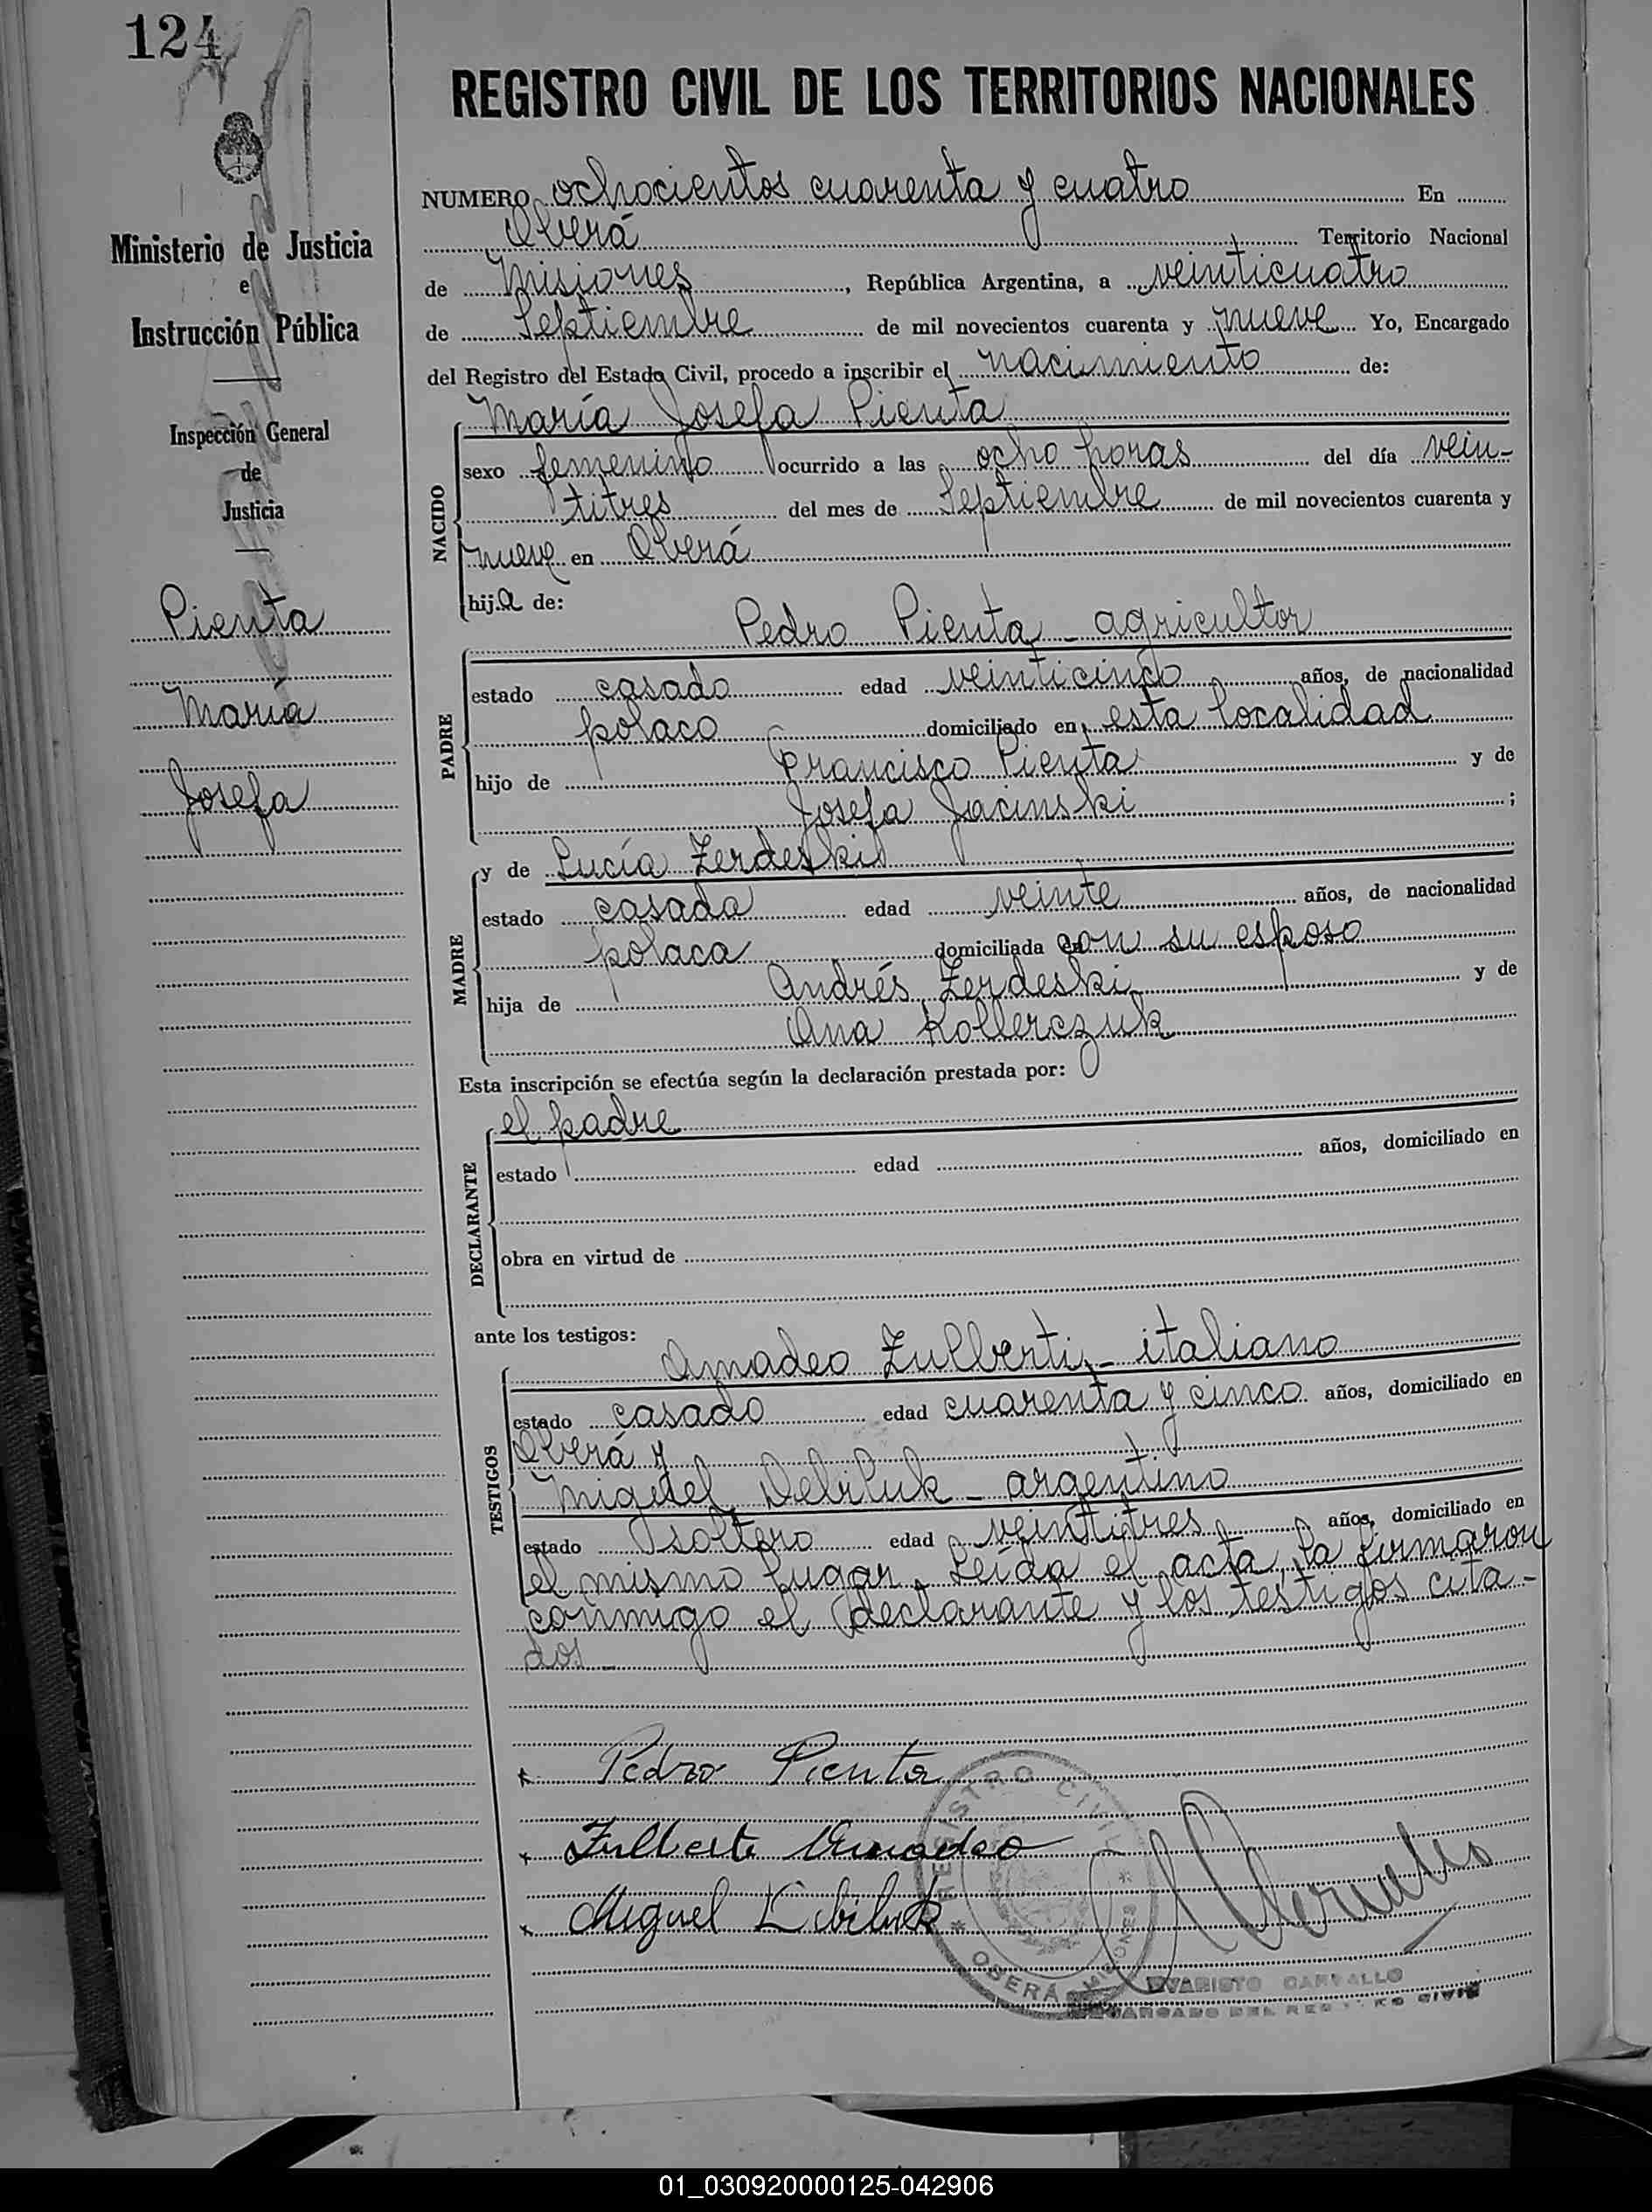 124
REGISTRO CIVIL DE LOS TERRITORIOS NACIONALES
Ministerio de Justicia
e
Instrucción Pública
Inspección General
de
Justicia
Pienta
María
Josefa
NUMERO ochocientos cuarenta y cuatro En
Oberá Territorio Nacional
de Misiones, República Argentina, a veinticuatro
de Septiembre de mil novecientos cuarenta y nueve Yo, Encargado
del Registro del Estado Civil, procedo a inscribir el nacimiento de:
María Josefa Pienta
NACIDO
sexo femenino ocurrido a las ocho horas del día vein-
titres del mes de Septiembre de mil novecientos cuarenta y
nueve en Oberá
hija de:
Pedro Pienta - agricultor
PADRE
estado casado edad veinticinco años, de nacionalidad
polaco domiciliado en esta localidad
hijo de Francisco Pienta y de
Josefa Jacinski;
y de Lucía Zerdeski
MADRE
estado casada edad veinte años, de nacionalidad
polaca domiciliada con su esposo
hija de Andrés Zerdeski y de
Ana Kollerczuk
Esta inscripción se efectúa según la declaración prestada por:
el padre
DECLARANTE
estado edad años, domiciliado en
obra en virtud de
ante los testigos:
Amadeo Zulberti - italiano
TESTIGOS
estado casado edad cuarenta y cinco años, domiciliado en
Oberá y
Miguel Debiluk - argentino
estado soltero edad veintitres años, domiciliado en
el mismo lugar. Leída el acta, la firmaron
conmigo el declarante y los testigos cita-
dos -
Pedro Pienta
Zulberti Amadeo
Miguel
REGISTRO CIVIL
OBERÁ MISIONES
EVARISTO CARVALLO
ENCARGADO DEL REGISTRO CIVIL
01_030920000125-042906